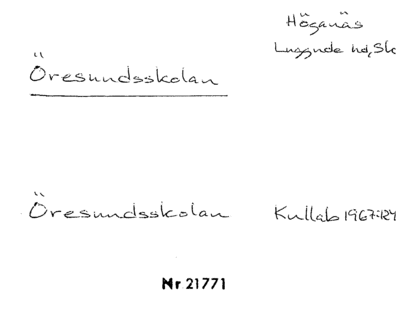 Höganäs
Luggude hd, Sk
Öresundsskolan
Öresundsskolan Kullab 1967:124
Nr 21771